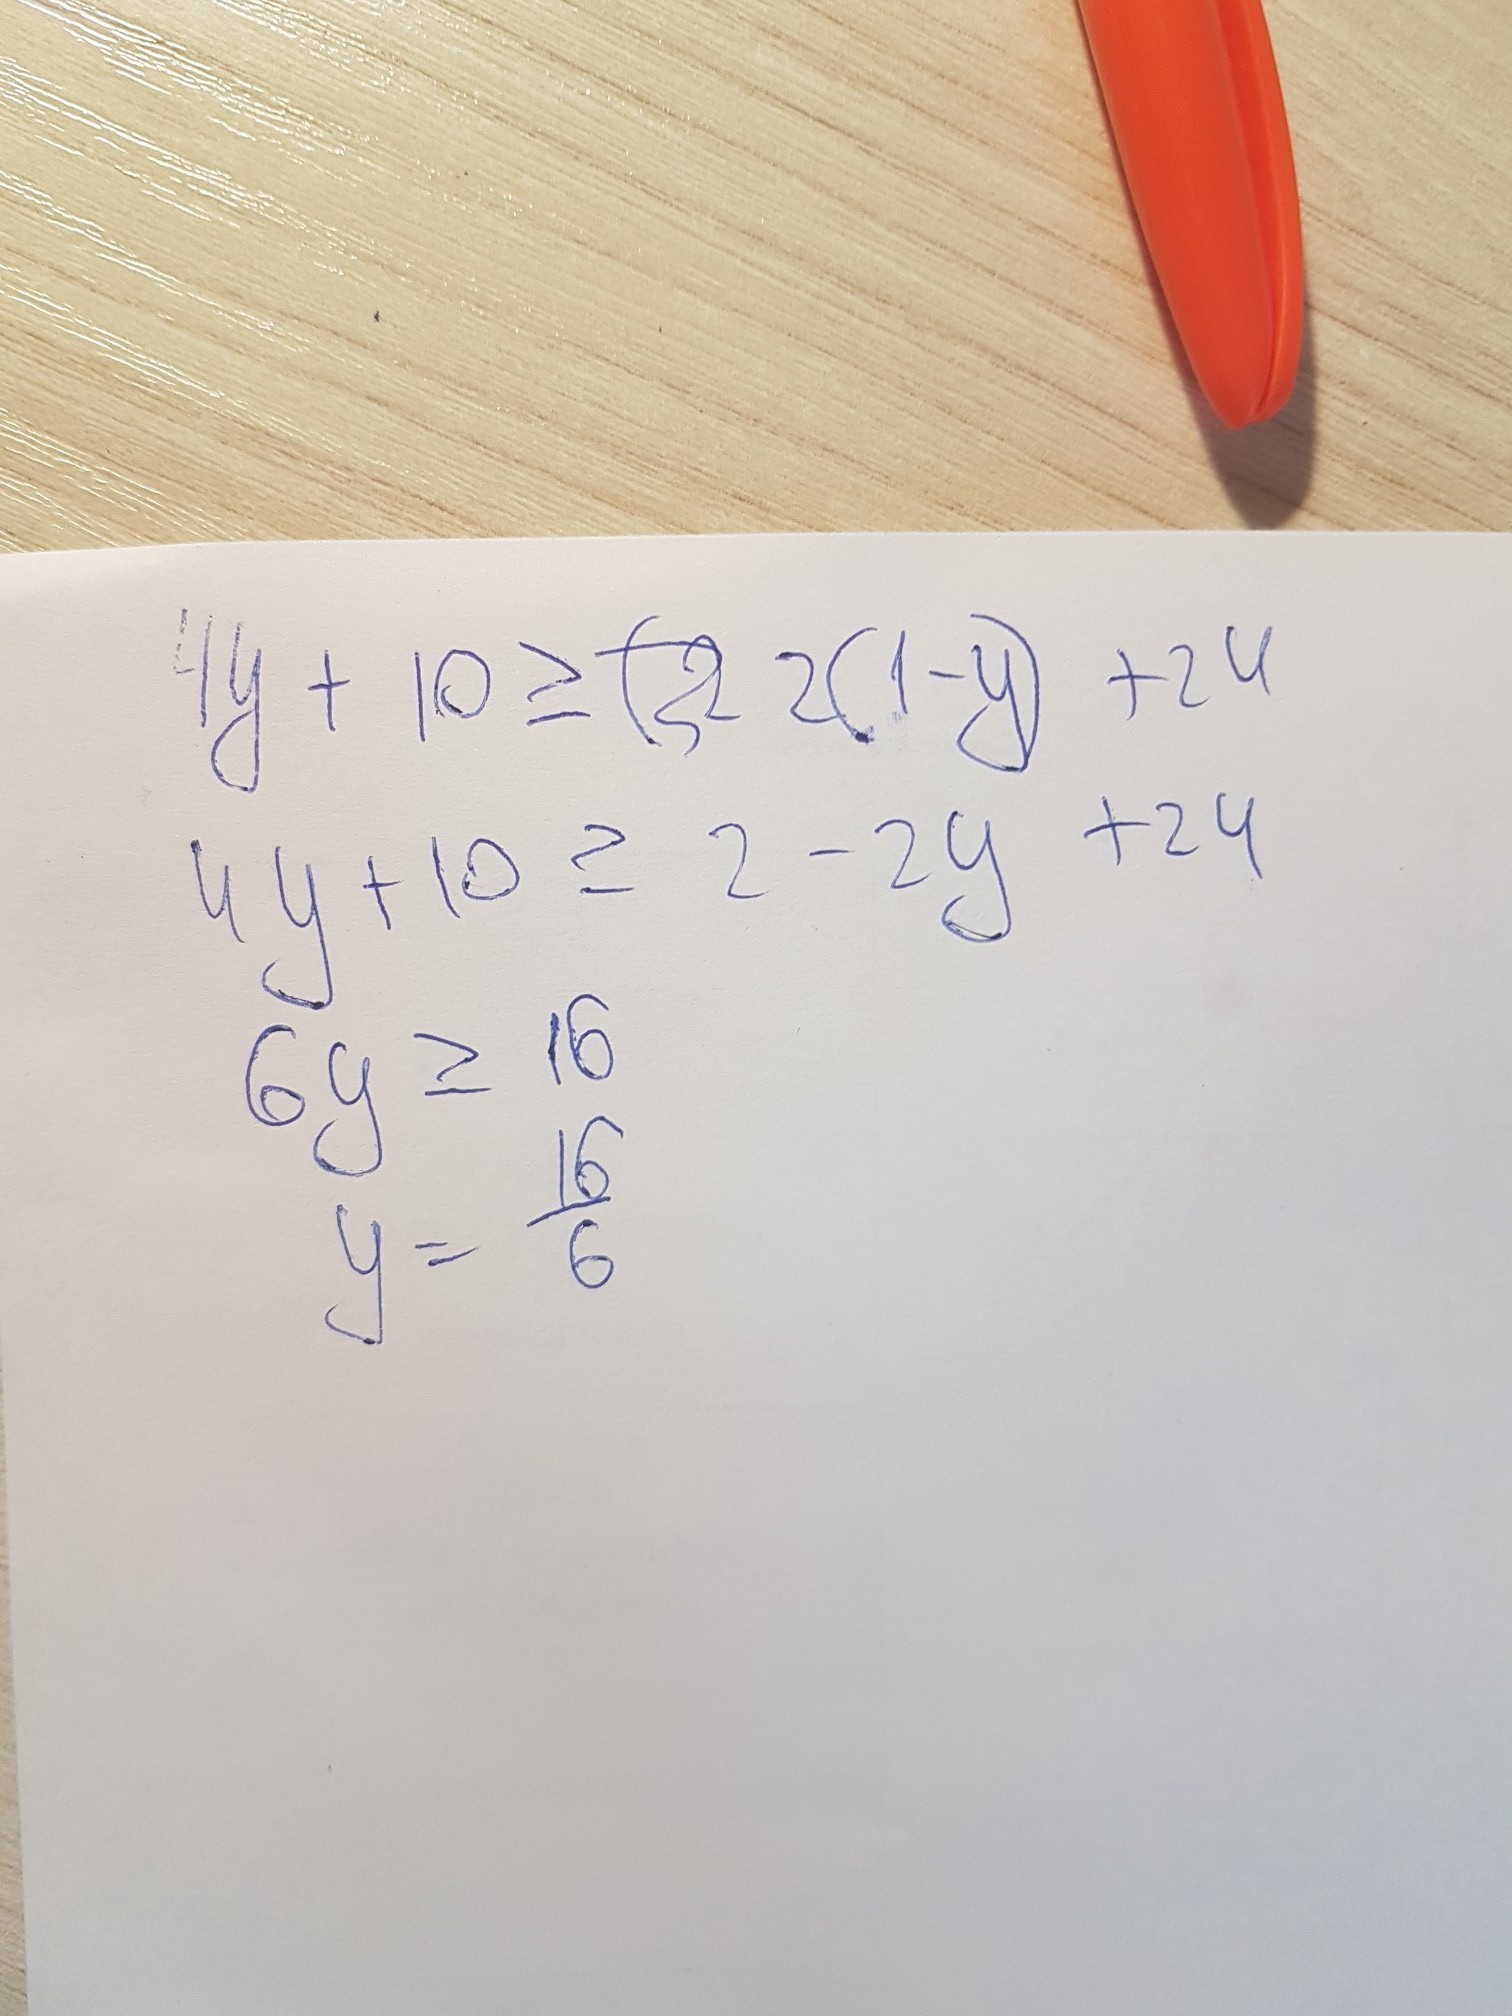 4y + 10 ≥ 2(1-y) + 24
4y + 10 ≥ 2 - 2y + 24
6y ≥ 16
y = 16/6